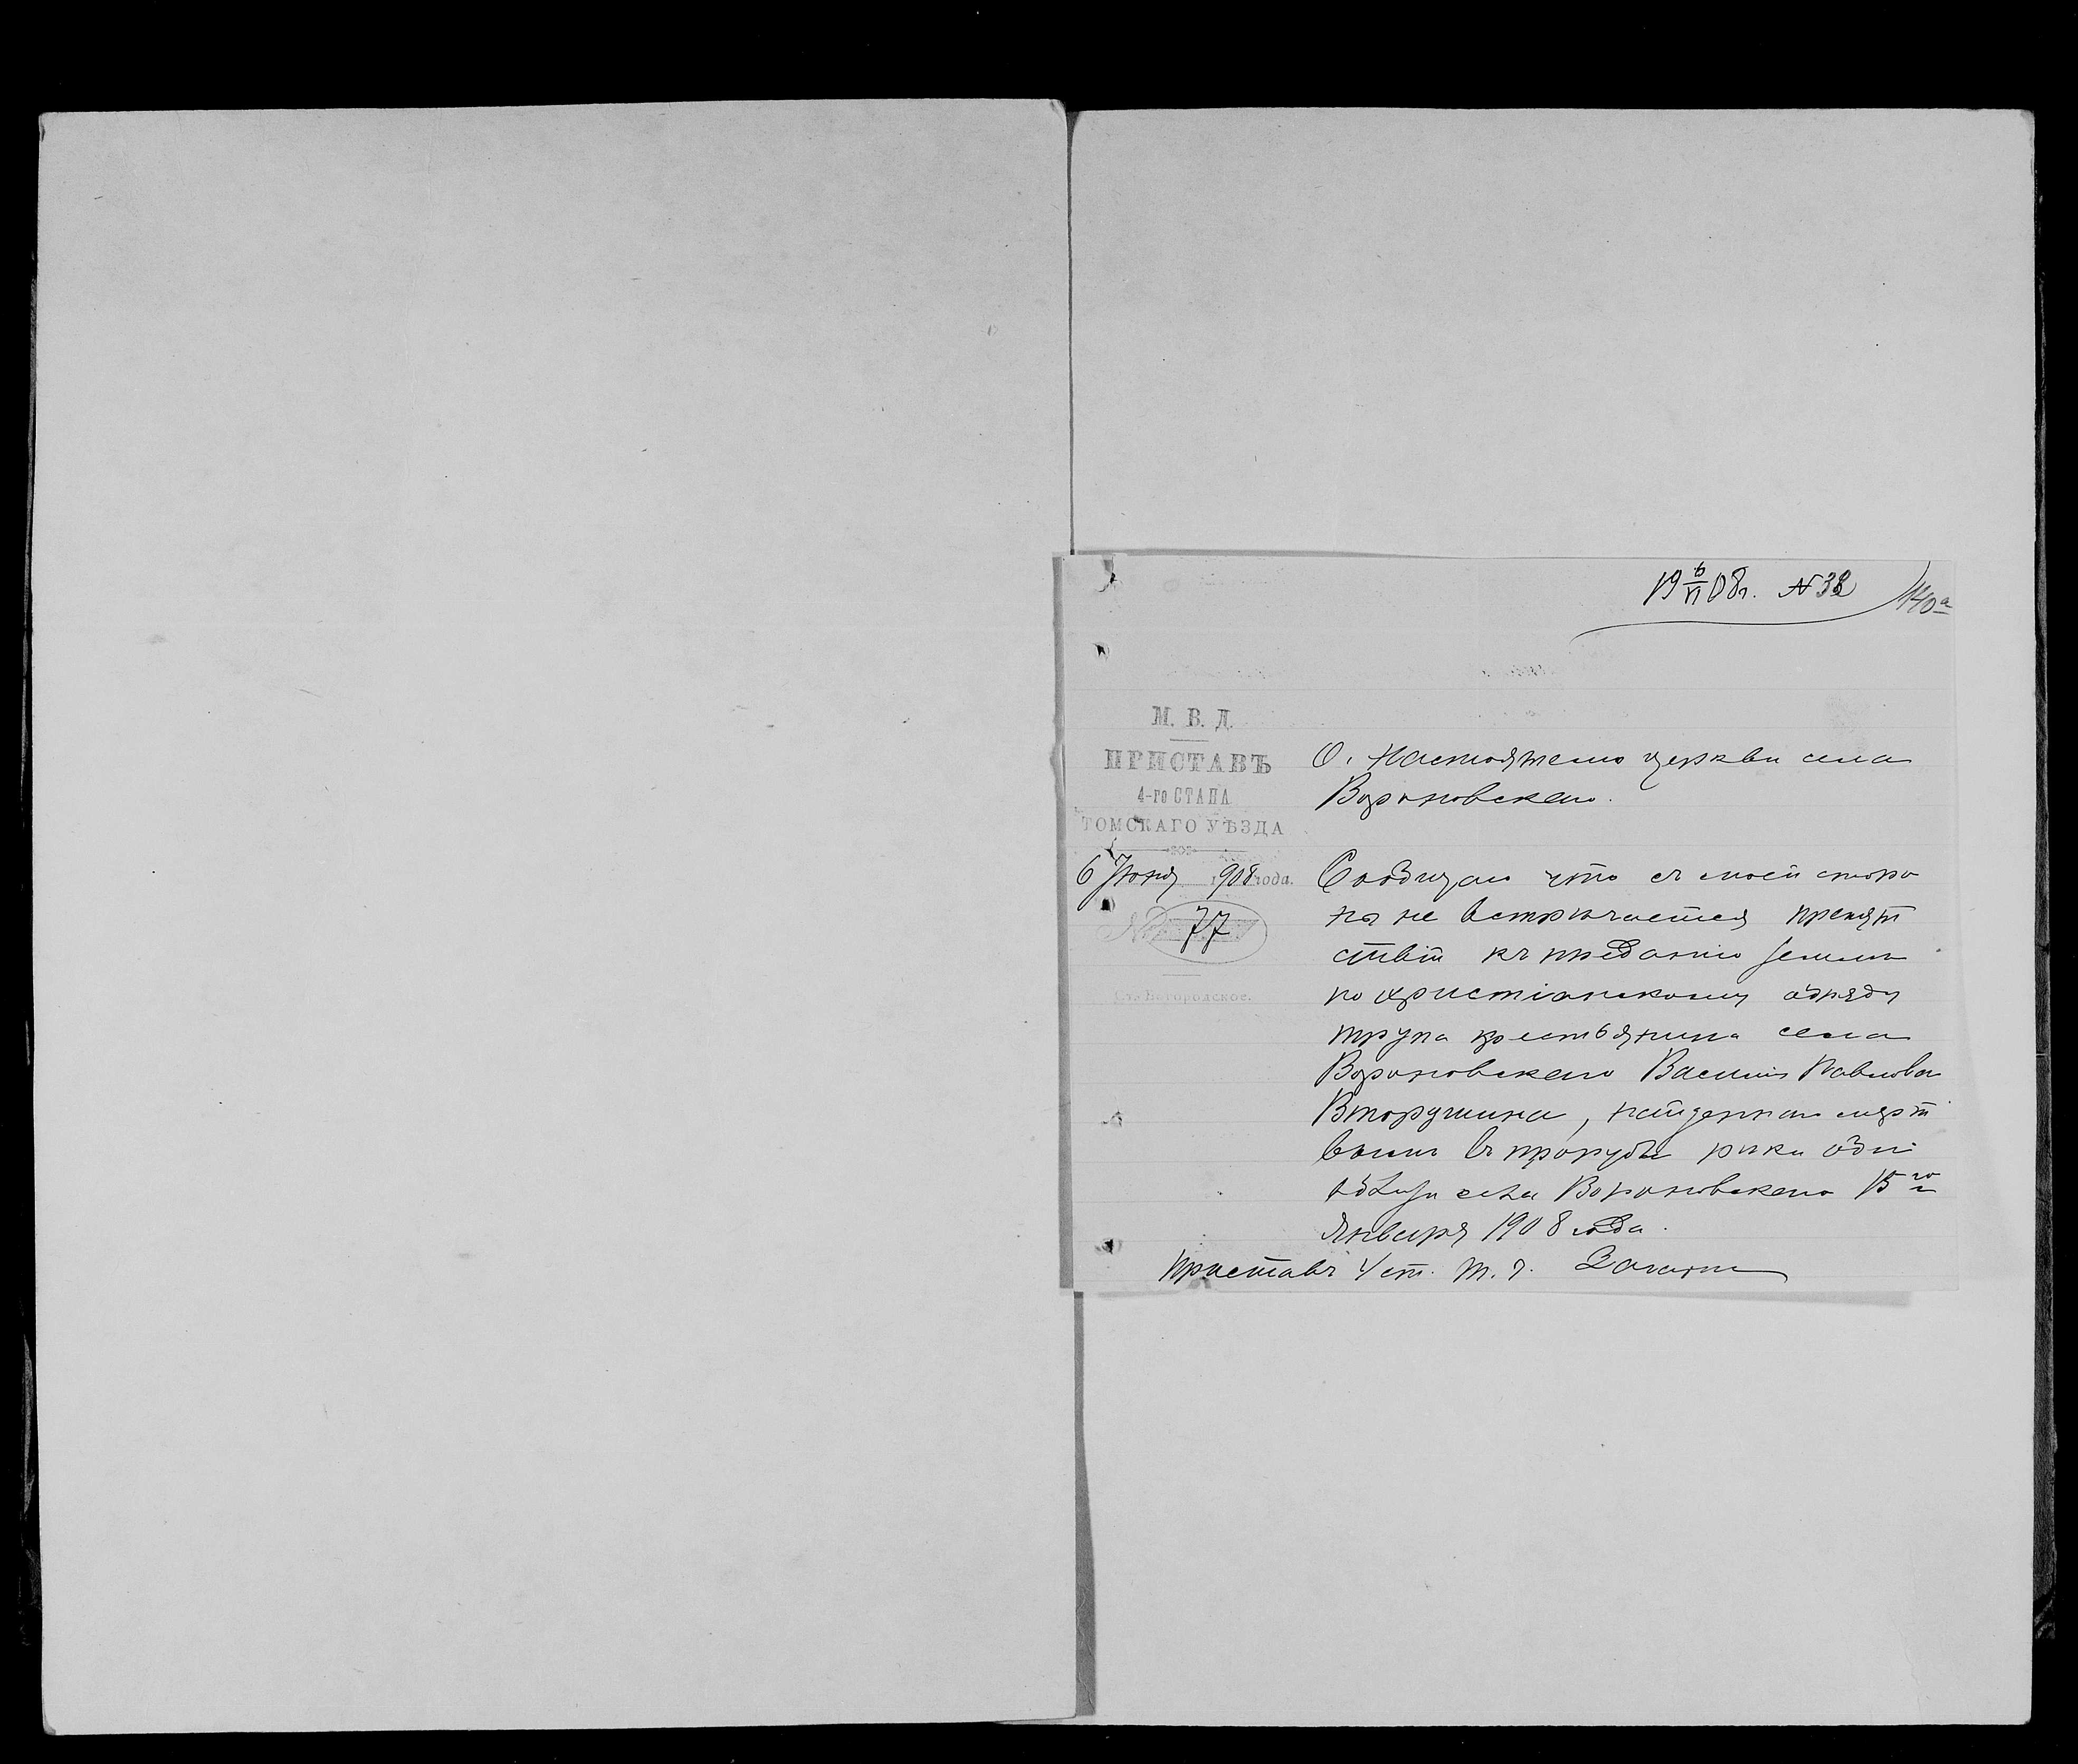 19 6/VI 08 г. № 38
140а
М. В. Д.
ПРИСТАВЪ
4-го СТАНА
ТОМСКАГО УѢЗДА
6 Іюня 1908 года.
№ 77
с. Богородское.
О. Настоятелю церкви села
Вороновскаго.
Сообщаю что съ моей сторо
ны не встрѣчается препят
ствій къ преданію землѣ
по христіанскому обряду
трупа крестьянина села
Вороновскаго Василія Павлова
Вторушина, найденнаго мерт
вымъ въ проруби рѣки Оби
вблизи села Вороновскаго 15го
Января 1908 года.
Приставъ 4 ст. Т. у.